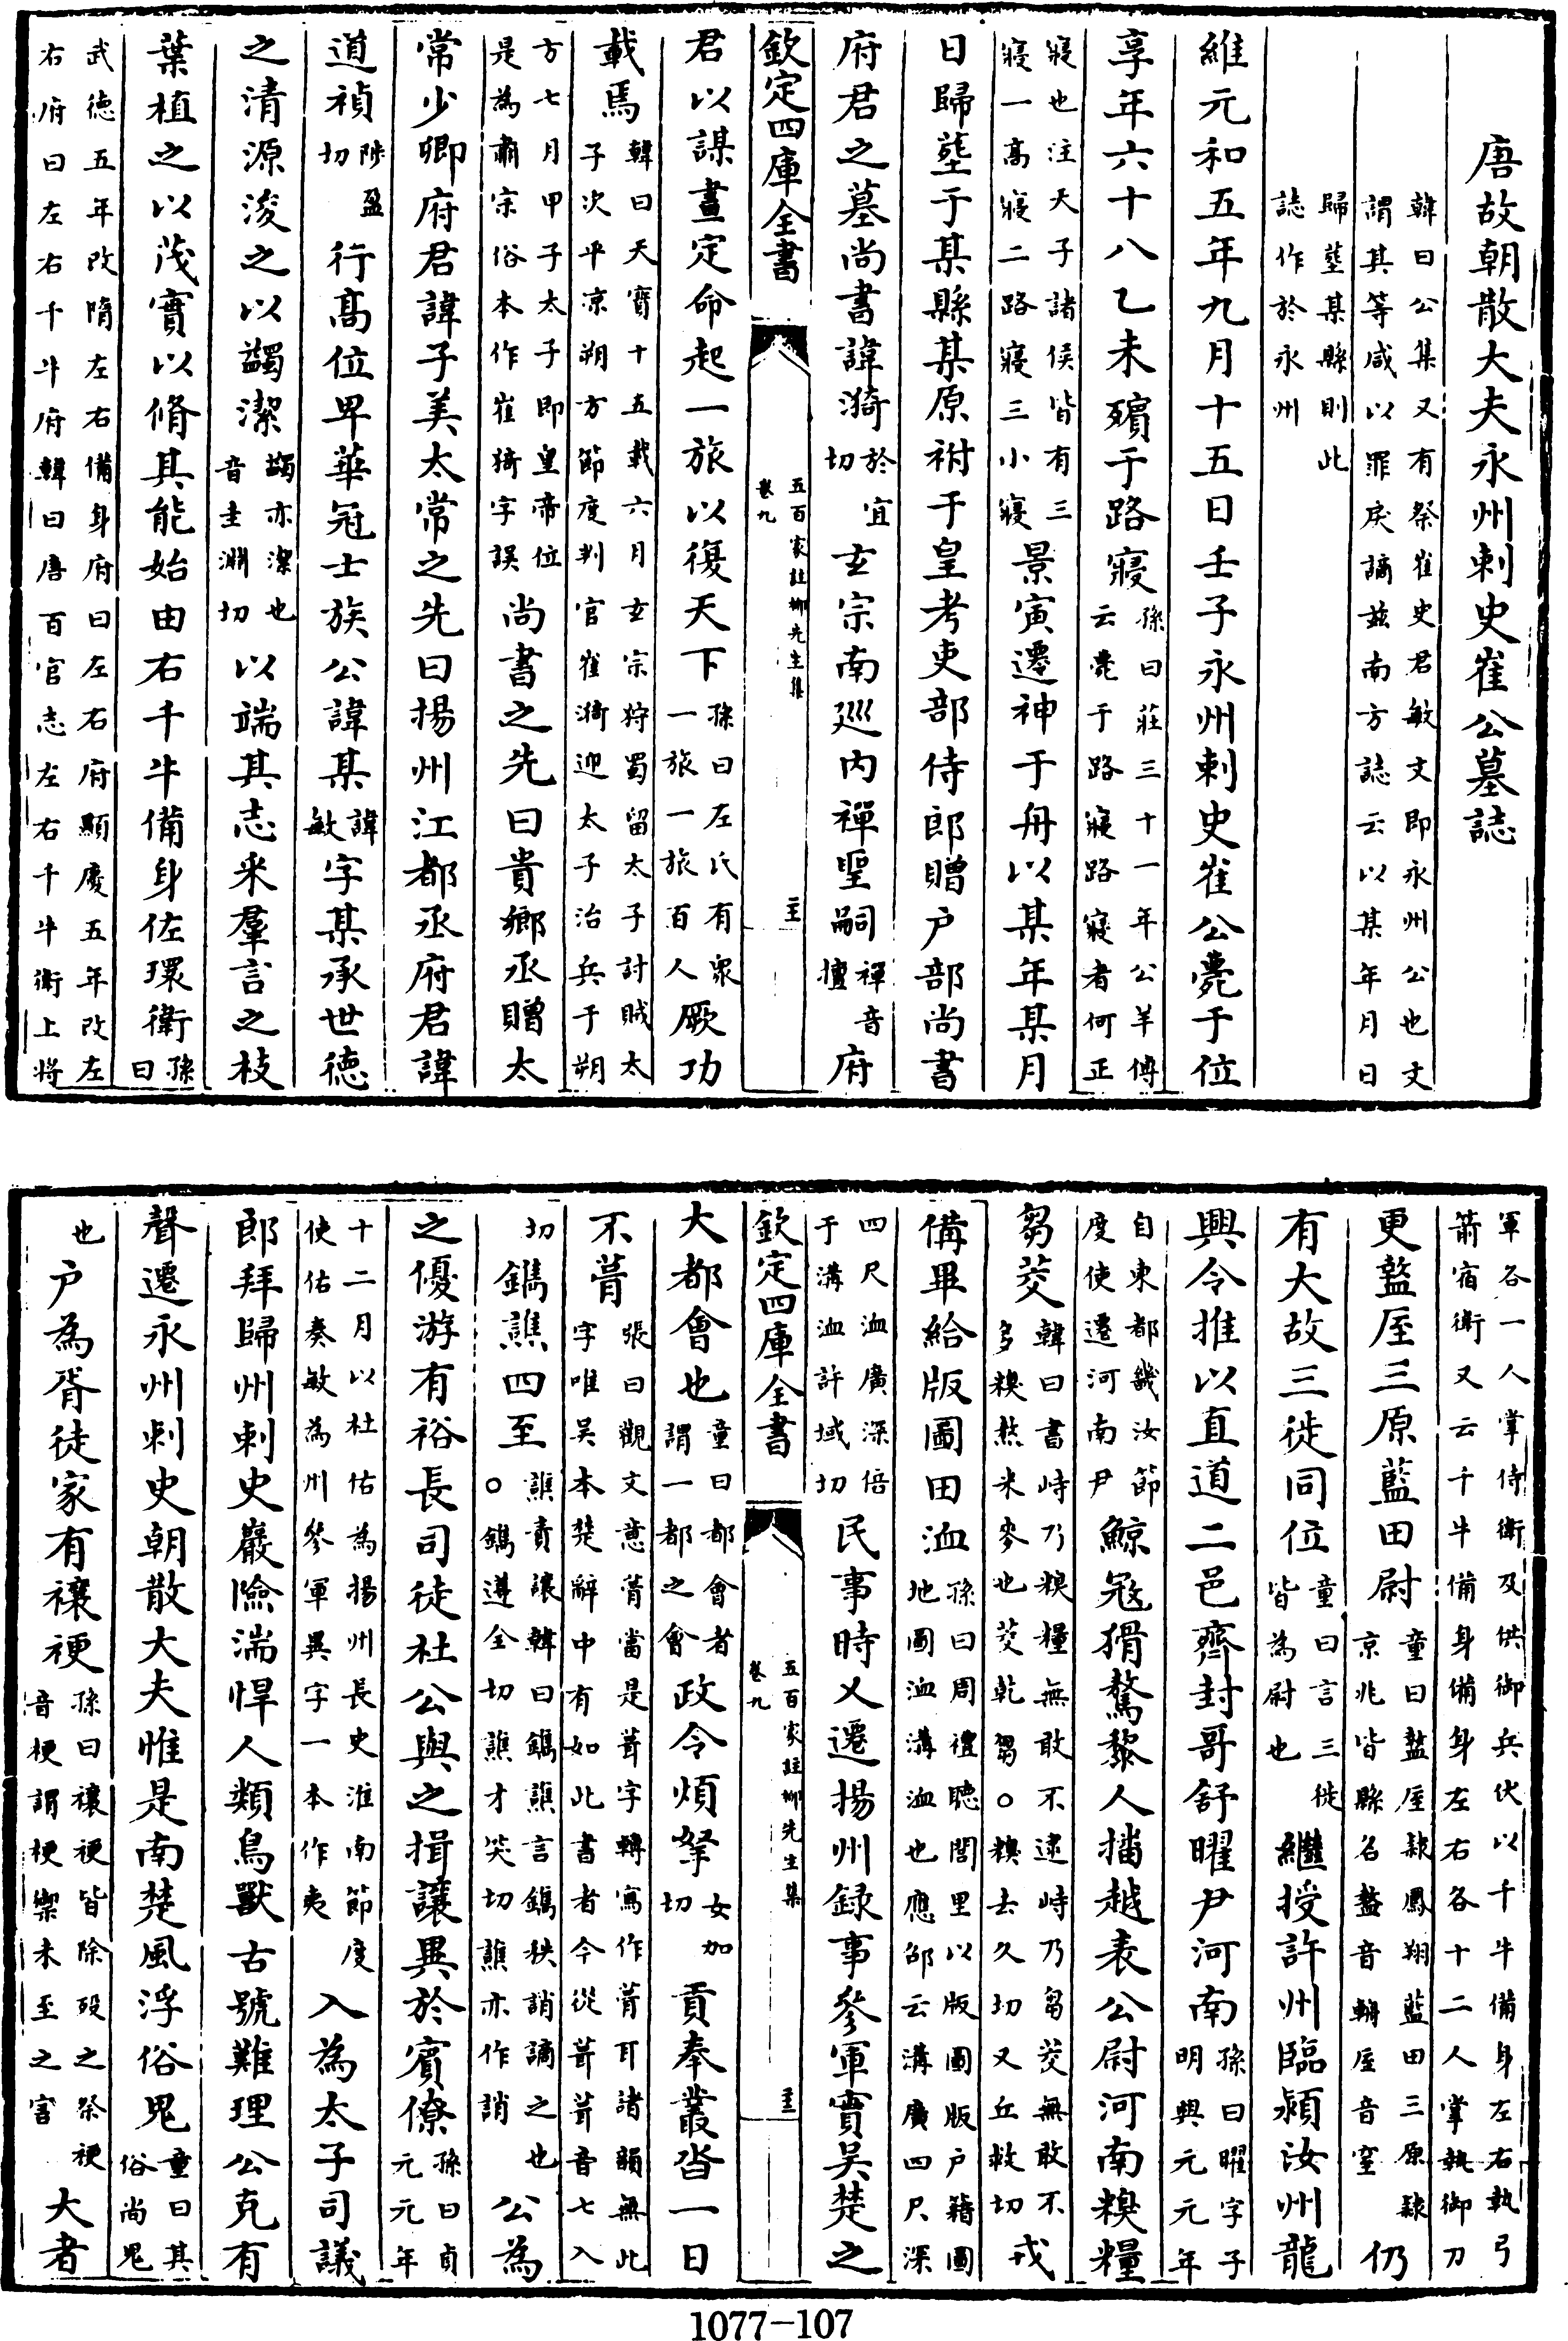 唐故朝散大夫永州刺史崔公墓誌
韓曰公集又有祭崔史君敏文即永州公也文
謂其等咸以罪戾謫兹南方誌云以某年月日
歸塟某縣則此
誌作於永州
維元和五年九月十五日壬子永州刺史崔公薨于位
享年六十八乙未殯于路寢孫曰莊三十一年公羊傳云薨于路寢路寢者何正
寢也注天子諸侯皆有三寢一髙寢二路寢三小寢景寅遷神于舟以某年某月
日歸塟于某縣某原祔于皇考吏部侍郎贈户部尚書
府君之墓尚書諱漪於宜切玄宗南廵内禪聖嗣禪音擅府
欽定四庫全書
五百家註柳先生集
卷九
君以謀畫定命起一旅以復天下孫曰左氏有衆一旅一旅百人厥功
載焉韓曰天寶十五載六月玄宗狩蜀留太子討賊太子次平凉朔方節度判官崔漪迎太子治兵于朔
方七月甲子太子即皇帝位是為肅宗俗本作崔猗字誤尚書之先曰貴鄉丞贈太
常少卿府君諱子美太常之先曰揚州江都丞府君諱
道禎陟盈切行髙位卑華冠士族公諱某諱敏字某承世德
之清源浚之以蠲潔蠲亦潔也音圭淵切以端其志采羣言之枝
葉植之以茂實以脩其能始由右千牛備身佐環衛孫曰
武德五年改隋左右備身府曰左右府顯慶五年改左
右府曰左右千牛府韓曰唐百官志左右千牛衛上將
軍各一人掌侍衛及供御兵仗以千牛備身左右執弓
箭宿衛又云千牛備身備身左右各十二人掌執御刀
更盩厔三原藍田尉童曰盩厔隷鳳翔藍田三原隷京兆皆縣名盩音輈厔音窒仍
有大故三徙同位童曰言三徙皆為尉也繼授許州臨潁汝州龍
興令推以直道二邑齊封哥舒曜尹河南孫曰曜字子明興元元年
自東都畿汝節度使遷河南尹鯨冦猾驁黎人播越表公尉河南糗糧
芻茭韓曰書峙乃糗糧無敢不逮峙乃芻茭無敢不多糗熬米麥也茭乾芻○糗去久切又丘救切戎
備畢給版圖田洫孫曰周禮聽閭里以版圖版户籍圖地圖洫溝洫也應邵云溝廣四尺深
四尺洫廣深倍于溝洫許域切民事時乂遷揚州録事參軍實吳楚之
欽定四庫全書
五百家註柳先生集
卷九
大都會也童曰都會者謂一都之會政令煩拏女加切貢奉叢沓一日
不葺張曰觀文意葺當是葺字轉寫作葺耳諸韻無此字唯吳本楚辭中有如此書者今從葺葺音七入
切鐫譙四至譙責讓韓曰鐫譙言鐫秩誚謫之也○鐫遵全切譙才笑切譙亦作誚公為
之優游有裕長司徒杜公與之揖讓異於賓僚孫曰貞元元年
十二月以杜佑為揚州長史淮南節度使佑奏敏為州參軍異字一本作夷入為太子司議
郎拜歸州刺史巖險湍悍人類鳥獸古號難理公克有
聲遷永州刺史朝散大夫惟是南楚風浮俗鬼童曰其俗尚鬼
也户為胥徒家有禳梗孫曰禳梗皆除殁之祭梗音梗謂梗禦未至之害大者
1077-107